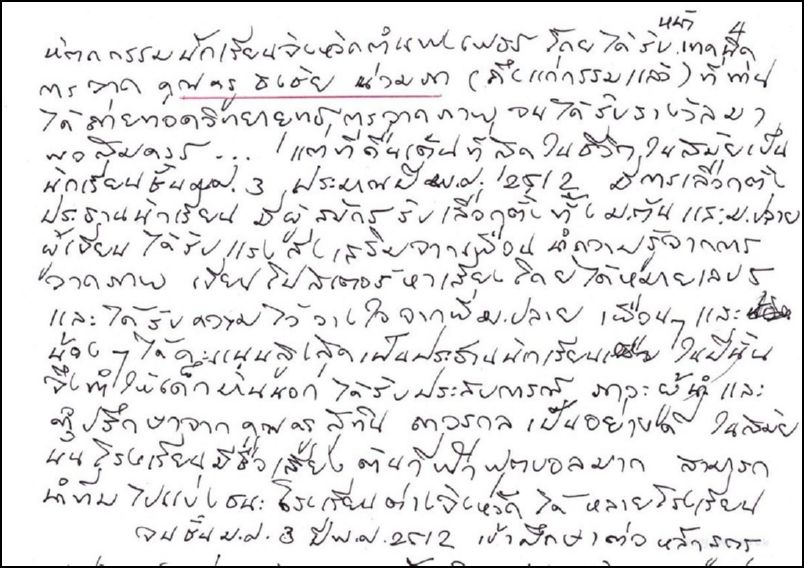 หน้า 4
หัตถกรรมนักเรียนจังหวัดกำแพงเพชร โดยได้รับเทคนิค
การวาด คุณครู ธงชัย น่วมภา (ถึงแก่กรรมแล้ว) ที่ท่าน
ได้ถ่ายทอดวิทยายุทธ์การวาดภาพ จนได้รับรางวัลมา
พอสมควร ... แต่ที่ตื่นเต้นที่สุดในชีวิต ในสมัยเป็น
นักเรียนชั้น ม.ศ. 3 ประมาณปี พ.ศ. 2512 มีการเลือกตั้ง
ประธานนักเรียน มีผู้สมัครรับเลือกตั้งทั้ง ม.ต้น และ ม.ปลาย
ผู้เขียน ได้รับแรงส่งเสริมจากเพื่อน นำความรู้จากการ
วาดภาพ เขียนโปสเตอร์หาเสียง โดยได้หมายเลข 5
และได้รับความไว้วางใจจากพี่ ม.ปลาย เพื่อนๆ และ
น้องๆ ได้คะแนนสูงสุดเป็นประธานนักเรียน ในปีนั้น
จึงทำให้เด็ก ได้รับประสบการณ์ ภาวะผู้นำ และ
ที่ปรึกษาจาก คุณครู ถาวรกล เป็นอย่างดี ในสมัย
นั้นโรงเรียนมีชื่อเสียง ด้านกีฬาฟุตบอลมาก สามารถ
นำทีมไปแข่งชนะโรงเรียนต่างจังหวัด ได้หลายโรงเรียน
จบชั้น ม.ศ. 3 ปี พ.ศ. 2512 เข้าศึกษาต่อ หลักสูตร